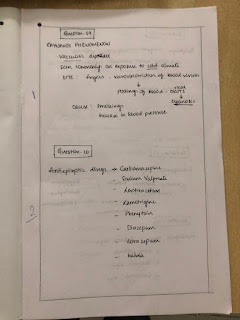 Question-09
RAYNAUD'S PHENOMENON
VASCULAR disorder
Seen commonly on exposure to cold climate
SITE : fingers - vasoconstriction of blood vessels
↓
pooling of blood -
digits
cyanosis
CAUSE : Smoking
Increase in blood pressure
1
Question - 10
Antiepileptic drugs → Carbamazepine
- Sodium Valproate
- Lamotrigine
- Phenytoin
- Diazepam
- Lorazepam
2